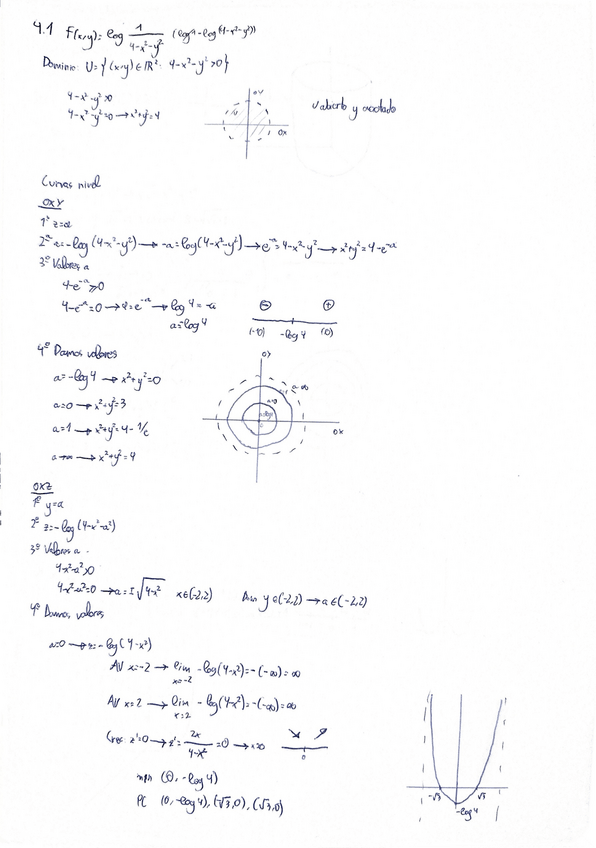 4.1 F(x,y)= log 1/(4-x²-y²) (log1-log(4-x²-y²))
Dominio: U={(x,y)∈ℝ²: 4-x²-y²>0}
4-x²-y²>0
4-x²-y²=0 → x²+y²=4
U
OY
OX
U abierto y acotado
Curvas nivel
OXY
1º z=a
2º a=-log(4-x²-y²) → -a=log(4-x²-y²) → e^-a=4-x²-y² → x²+y²=4-e^-a
3º Valores a
4-e^-a≥0
4-e^-a=0 → 4=e^-a → log4=-a
a=-log4
⊖ ⊕
(-10) -log4 (0)
4º Damos valores
a=-log4 → x²+y²=0
a=0 → x²+y²=3
a=1 → x²+y²=4-1/e
a→∞ → x²+y²=4
OY
a→∞
a=0
OX
OXZ
1º y=a
2º z=-log(4-x²-a²)
3º Valores a
4-x²-a²>0
4-x²-a²=0 → a=±√(4-x²) x∈(-2,2) y∈(-2,2) → a∈(-2,2)
4º Damos valores
a=0 → z=-log(4-x²)
AV x=-2 → lim x=-2 -log(4-x²)=-(-∞)=∞
AV x=2 → lim x=2 -log(4-x²)=-(-∞)=∞
Crec z'=0 → z'=2x/(4-x²)=0 → x=0
0
min (0,-log4)
PC (0,-log4), (-√3,0), (√3,0)
-√3 √3
-log4